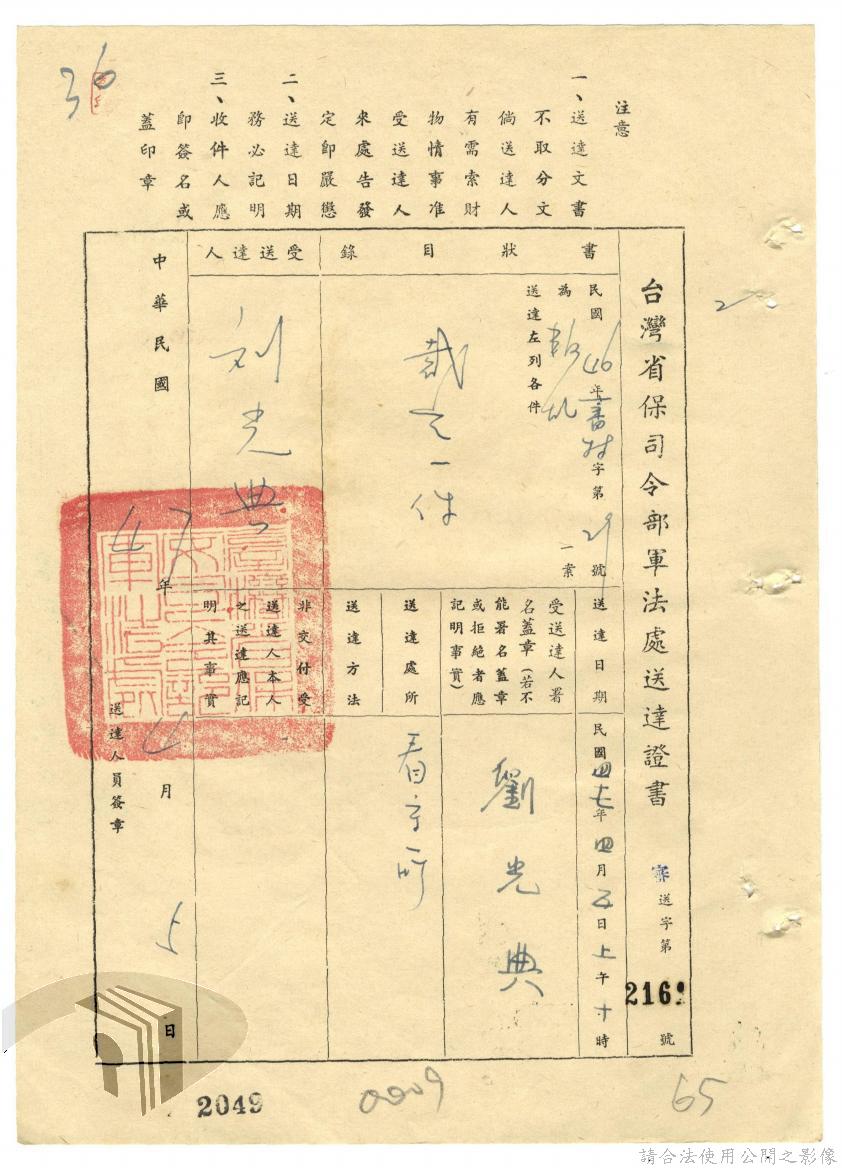 36
注意
一、送達文書
不取分文
倘送達人
有需索財
物情事准
受送達人
來處告發
定即嚴懲
二、送達日期
務必記明
三、收件人應
即簽名或
蓋印章
台灣省保司令部軍法處送達證書 審送字第 號
2
書狀目錄
民國46年審 字第29號
為 一案
送達左列各件
裁定一件
受送達人
刘光典
送達日期
民國四七年四月五日上午十時
受送達人署
名蓋章(若不
能署名蓋章
或拒絕者應
記明事實)
劉光典
送達處所
看守所
送達方法
非交付受
送達人本人
之送達應記
明其事實
中華民國47年4月5日
送達人員簽章
2049
0009
65
請合法使用公開之影像